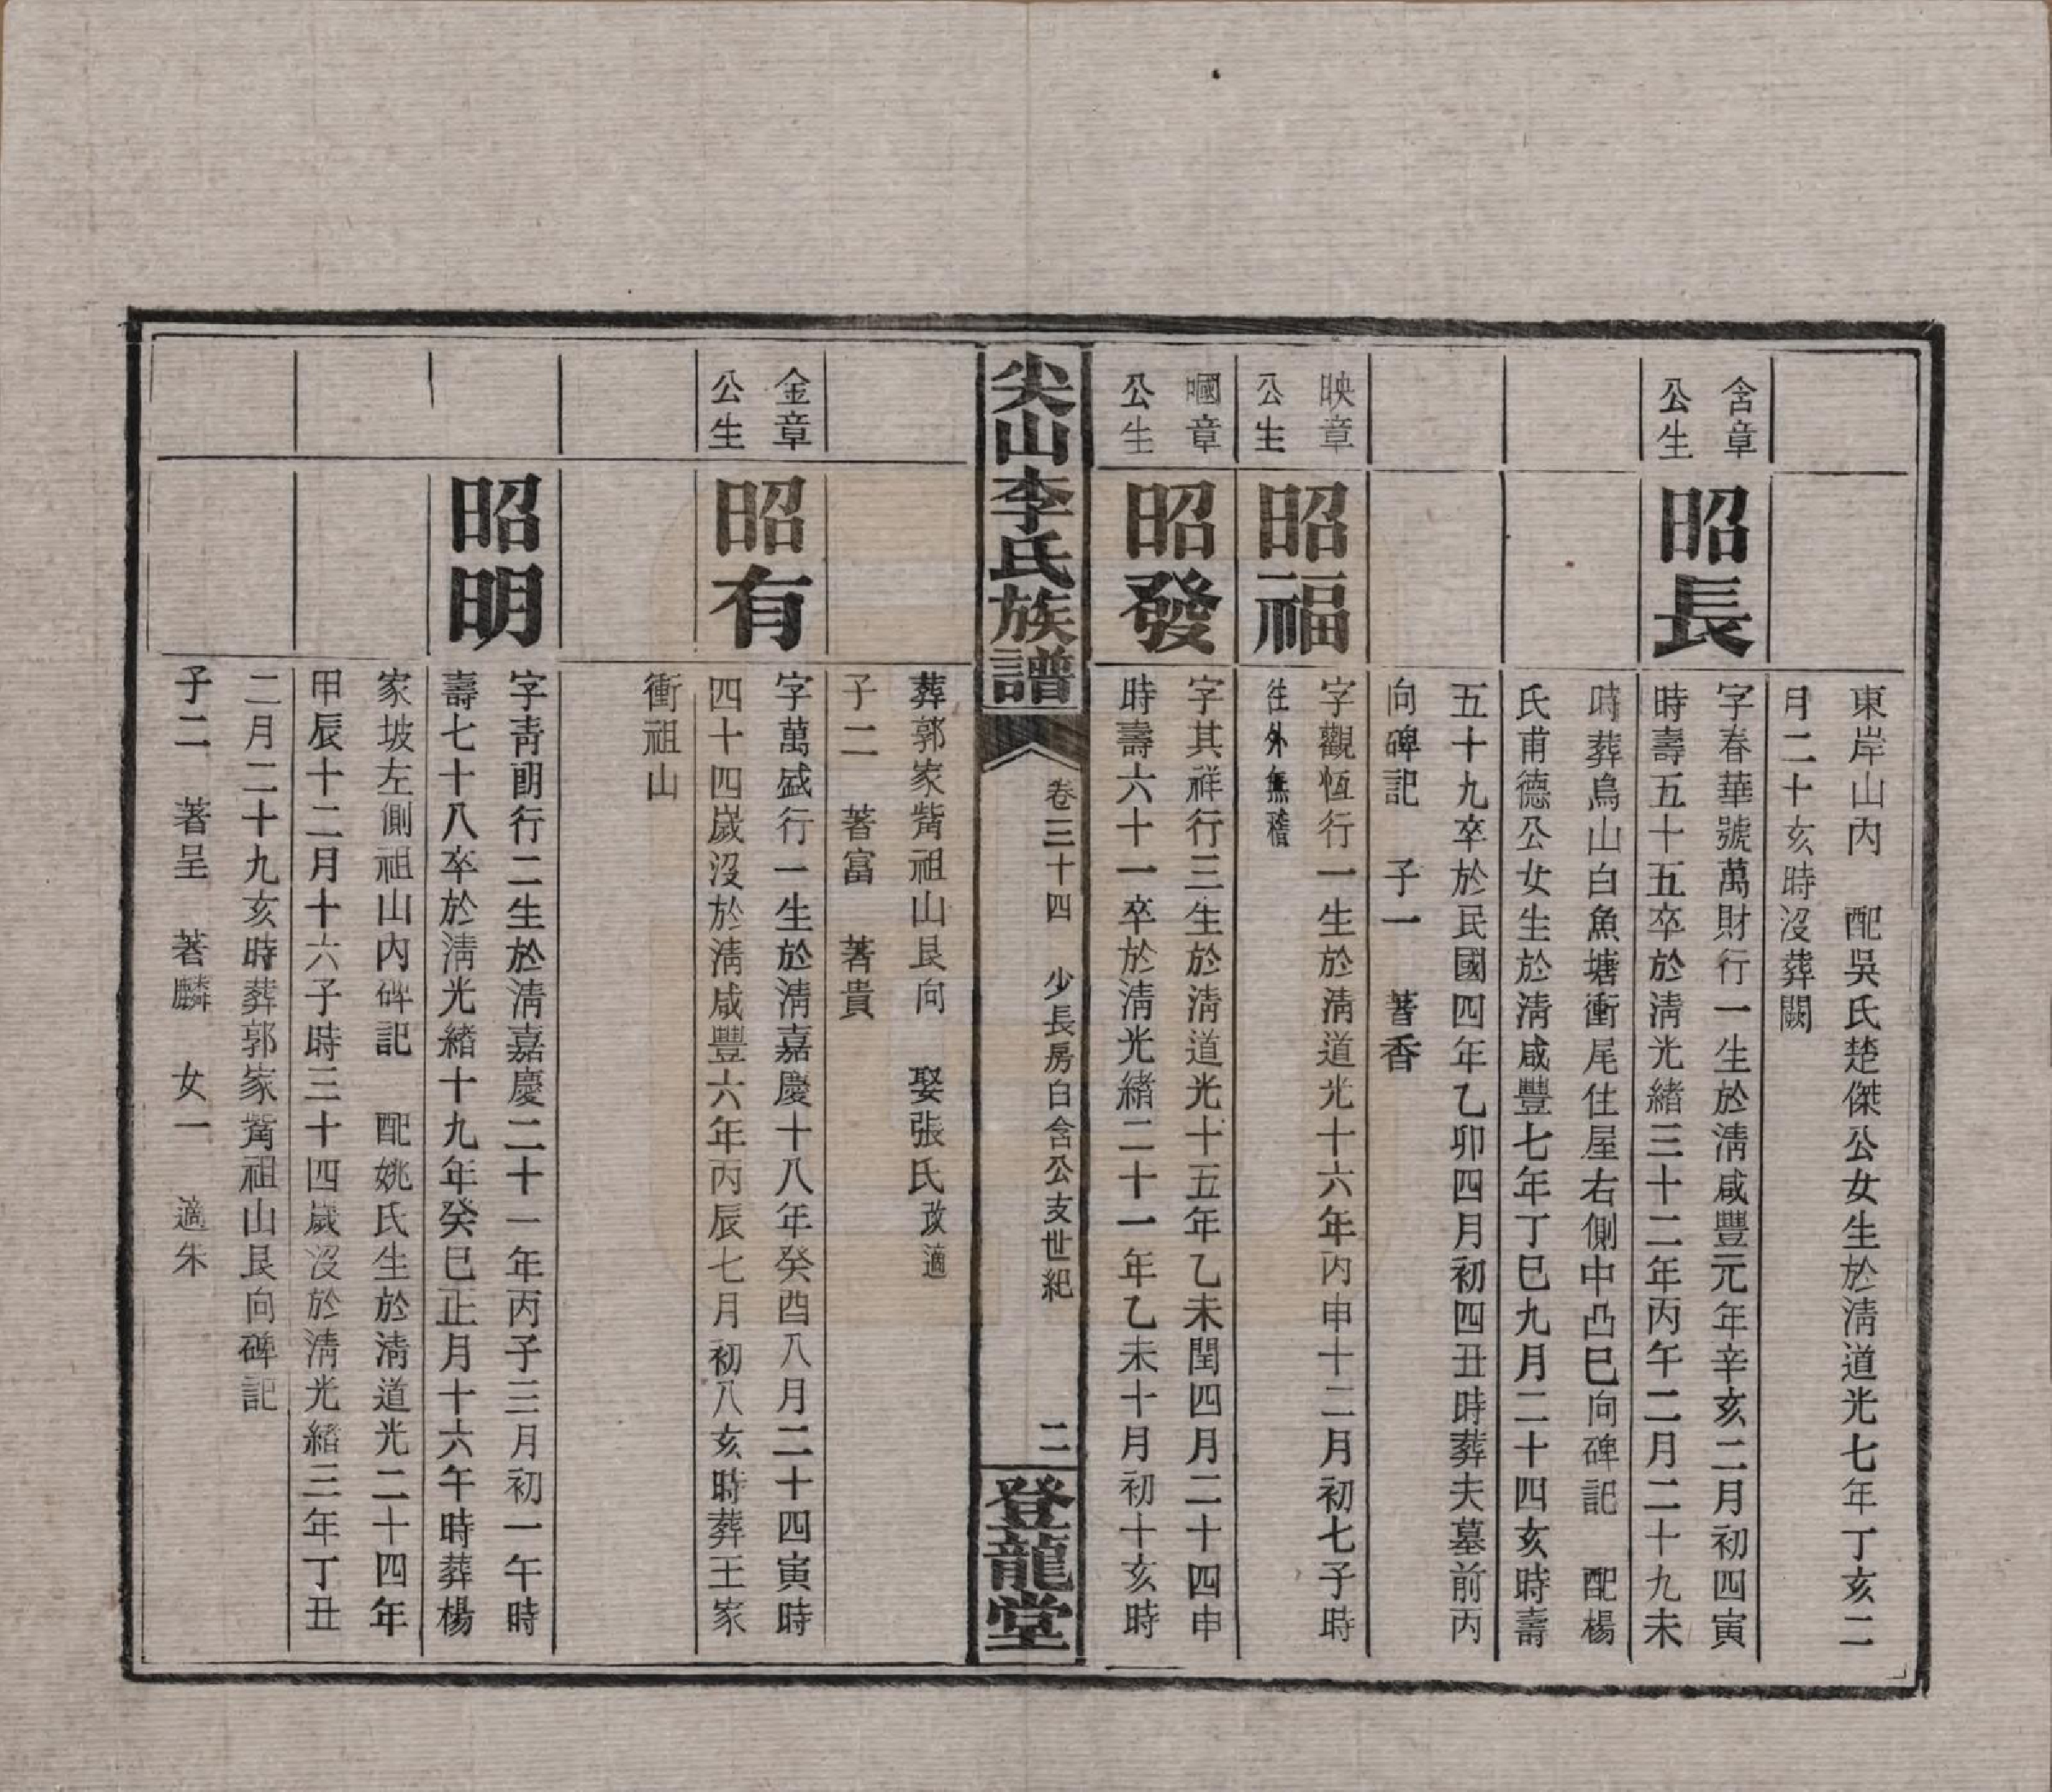 東岸山內　配吳氏楚傑公女生於淸道光七年丁亥二
月二十亥時沒葬闕
含章
公生
昭長
字春華號萬財行一生於淸咸豐元年辛亥二月初四寅
時壽五十五卒於淸光緖三十二年丙午二月二十九未
時葬烏山白魚塘衝尾住屋右側中凸巳向碑記　配楊
氏甫德公女生於淸咸豐七年丁巳九月二十四亥時壽
五十九卒於民國四年乙卯四月初四丑時葬夫墓前丙
向碑記　子一　著香
映章
公生
昭福
字觀恆行一生於淸道光十六年丙申十二月初七子時
往外無稽
嘓章
公生
昭發
字其祥行三生於淸道光十五年乙未閏四月二十四申
時壽六十一卒於淸光緖二十一年乙未十月初十亥時
尖山李氏族譜
卷三十四　少長房白含公支世紀
二
登龍堂
葬郭家觜祖山艮向　娶張氏改適
子二　著富　著貴
金章
公生
昭有
字萬盛行一生於淸嘉慶十八年癸酉八月二十四寅時
四十四歲沒於淸咸豐六年丙辰七月初八亥時葬王家
衝祖山
昭明
字靑朗行二生於淸嘉慶二十一年丙子三月初一午時
壽七十八卒於淸光緖十九年癸巳正月十六午時葬楊
家坡左側祖山內碑記　配姚氏生於淸道光二十四年
甲辰十二月十六子時三十四歲沒於淸光緖三年丁丑
二月二十九亥時葬郭家觜祖山艮向碑記
子二　著呈　著麟　女一　適朱